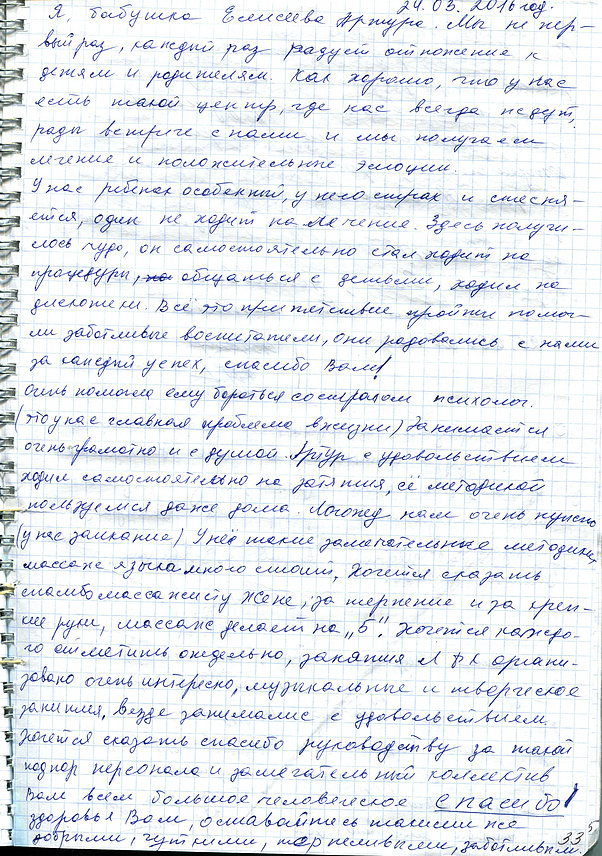 24.03.2016 год.
Я, бабушка Елисеева Артура. Мы не пер-
вый раз, каждый раз радует отношение к
детям и родителям. Как хорошо, что у нас
есть такой центр, где нас всегда ждут,
рады встрече с нами и мы получаем
лечение и положительные эмоции.
У нас ребенок особенный, у него страх и стесня-
ется, один не ходит на лечение. Здесь получи-
лось чудо, он самостоятельно стал ходит на
процедуры, общаться с детьми, ходил на
дискотеки. Всё это препятствие пройти помог-
ли заботливые воспитатели, они радовались с нами
за каждый успех, спасибо Вам!
Очень помогла ему бороться со страхом психолог.
(это у нас главная проблема в жизни) Занимается
очень грамотно и с душой. Артур с удовольствием
ходил самостоятельно на зятятия, её методикой
пользуемся даже дома. Логопед нам очень нужен
(у нас заикание) У неё такие замечательные методики,
массаж языка много стоит, Хочется сказать
спасибо массажисту Жене, за терпение и за креп-
кие руки, массаж делает на „5". Хочется каждо-
го отметить отдельно, занятия ЛФК органи-
зовано очень интересно, музыкальные и творческое
занятия, везде занимались с удовольствием.
Хочется сказать спасибо руководству за такой
подпор персонала и замечательный коллектив
Вам всем большое человеческое спасибо!
здоровья Вам, оставайтесь такими же
добрыми, чуткими, терпеливыми, заботливыми.
33